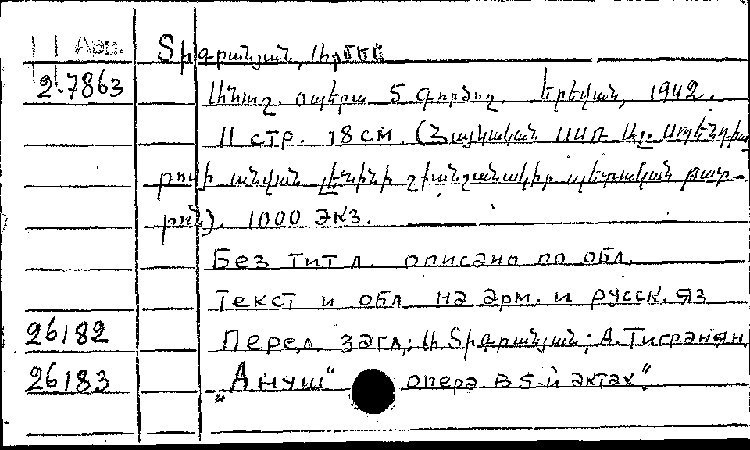 11 Арм. Տիգրանյան, Արմեն
2.7863
Անուշ. օպերա 5 գործող. Երևան, 1942.
11 стр. 18 см. (Հայկական ՍՍՌ Ալ. Սպենդիա
րովի անվան լենինի շքանշանակիր պետական թատ-
րոն). 1000 экз.
Без тит л. описано по обл.
Текст и обл на арм. и русск. яз
26182 Перед загл.: Ա Տիգրանյան; А. Тигранян,
26183 „Ануш“ опера в 5 и актах“.